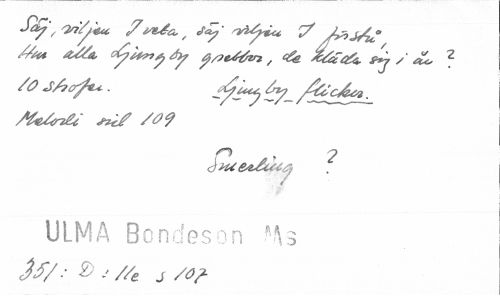 Säj, viljen I veta, säj viljen I förstå,
Hur alla Ljungby grebbor, de kläda sig i år?
10 strofer. Ljungby flickor.
Melodi vid 109
Smerling ?
ULMA Bondeson Ms
351: D: 11e s 107